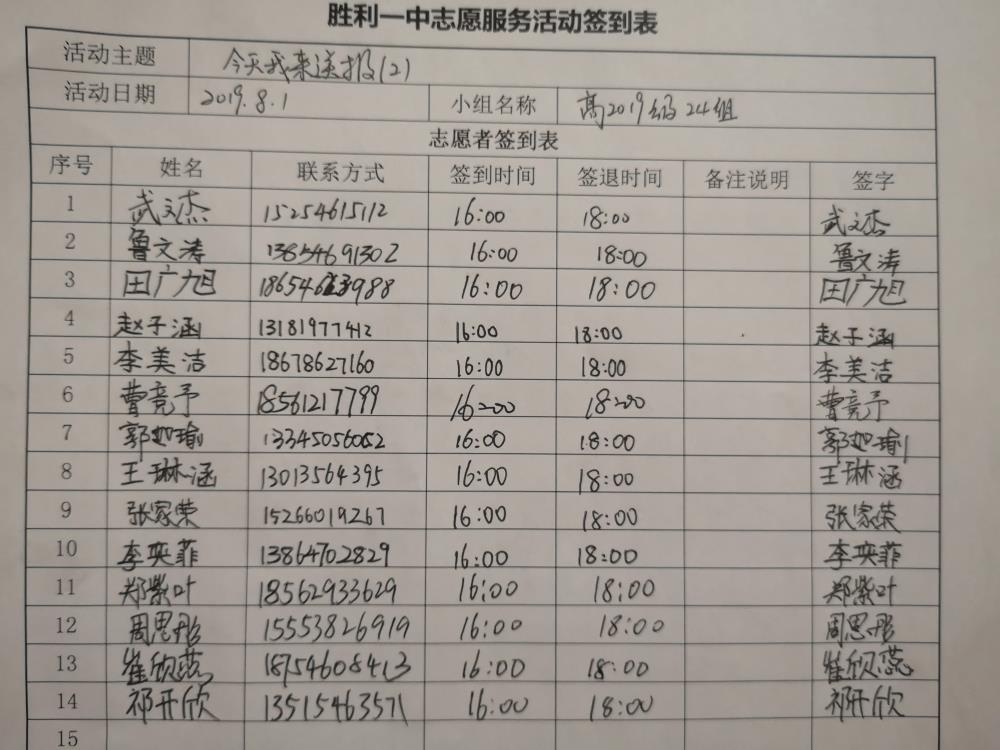 胜利一中志愿服务活动签到表
活动主题 今天我来送报(2)
活动日期 2019.8.1 小组名称 高2019级24组
志愿者签到表
序号 姓名 联系方式 签到时间 签退时间 备注说明 签字
1 武文杰 15254615112 16:00 18:00 武文杰
2 鲁文涛 13854691302 16:00 18:00 鲁文涛
3 田广旭 16:00 18:00 田广旭
4 赵子涵 13181977412 16:00 18:00 赵子涵
5 李美洁 18678627160 16:00 18:00 李美洁
6 曹竞予 18561217799 16:00 18:00 曹竞予
7 郭如瑜 13345056052 16:00 18:00 郭如瑜
8 王琳涵 13013564395 16:00 18:00 王琳涵
9 张家荣 15266019267 16:00 18:00 张家荣
10 李奕菲 13864702829 16:00 18:00 李奕菲
11 郑紫叶 18562933629 16:00 18:00 郑紫叶
12 周思彤 15553826919 16:00 18:00 周思彤
13 崔欣蕊 18754608413 16:00 18:00 崔欣蕊
14 祁开欣 13515463571 16:00 18:00 祁开欣
15